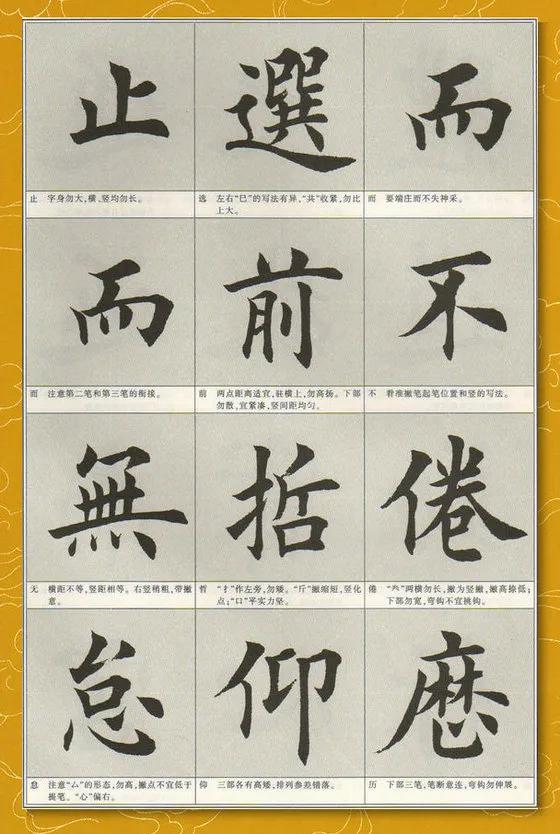 止
選
而
止 字身勿大,横、竖均勿长。
选 左右“巳”的写法有异,“共”收紧,勿比
上大。
而 要端庄而不失神采。
而
前
不
而 注意第二笔和第三笔的衔接。
前 两点距离适宜,驻横上,勿高扬。下部
勿散,宜紧凑,竖间距均匀。
不 看准撇笔起笔位置和竖的写法。
無
哲
倦
无 横距不等,竖距相等。右竖稍粗,带撇
意。
哲 “扌”作左旁,勿矮。“斤”撇缩短,竖化
点;“口”平实力坚。
倦 “龹”两横勿长,撇为竖撇,撇高捺低;
下部勿宽,弯钩不宜挑钩。
怠
仰
歷
怠 注意“厶”的形态,勿高,撇点不宜低于
提笔。“心”偏右。
仰 三部各有高矮,排列参差错落。
历 下部三笔,笔断意连,弯钩勿伸展。